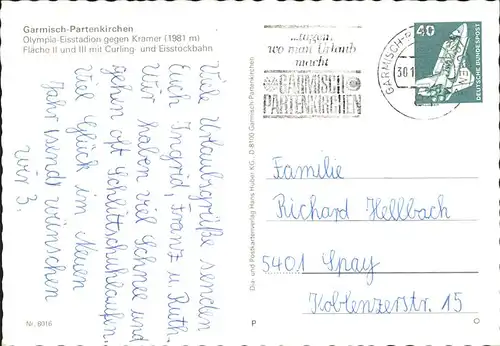 Garmisch-Partenkirchen
Olympia-Eisstadion gegen Kramer (1981 m)
Fläche II und III mit Curling- und Eisstockbahn
Viele Urlaubsgrüße senden
Euch Ingrid, Franz u. Ruth.
Wir haben viel Schnee und
gehen oft Schlittschuhlaufen.
Viel Glück im Neuen
Jahr wünschen
wir 3.
Nr. 8016
Dia- und Postkartenverlag Hans Huber KG., D 8100 Garmisch-Partenkirchen
...sagen,
wo man Urlaub
macht
GARMISCH
PARTENKIRCHEN
GARMISCH-P
30.1
40
DEUTSCHE BUNDESPOST
Familie
Richard Hellbach
5401 Spay
Koblenzerstr. 15
P